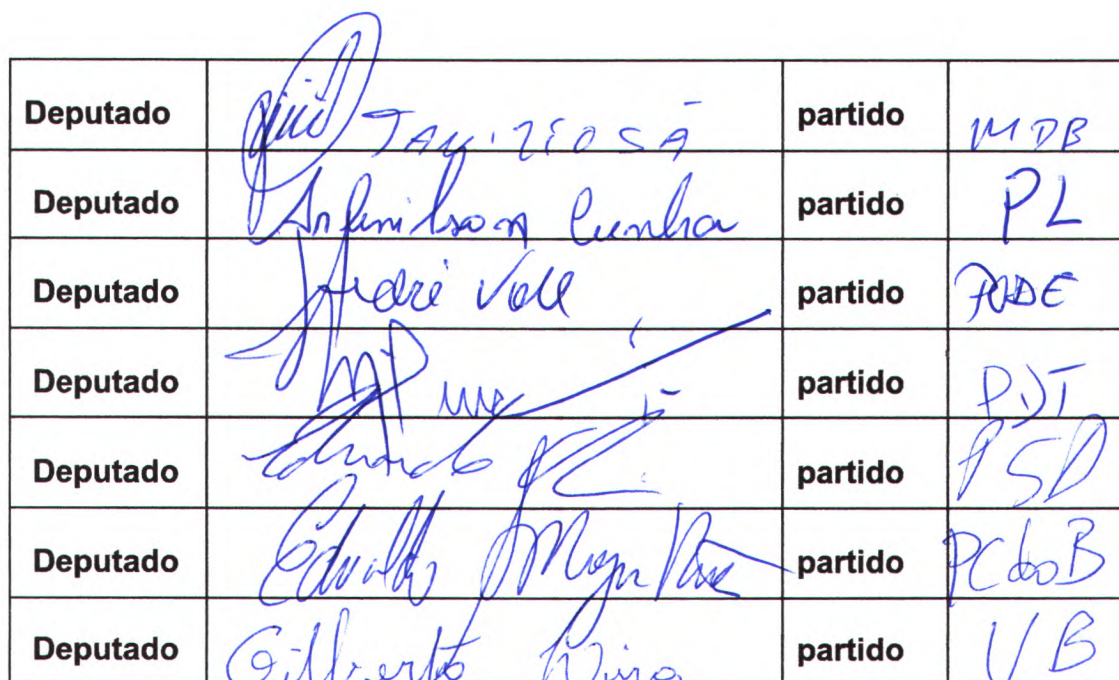 Deputado TANIZIO SÁ partido MDB
Deputado Arlenilson Cunha partido PL
Deputado André Vale partido PODE
Deputado partido PDT
Deputado Eduardo partido PSD
Deputado Edvaldo Magalhães partido PCdoB
Deputado Gilberto Lira partido UB